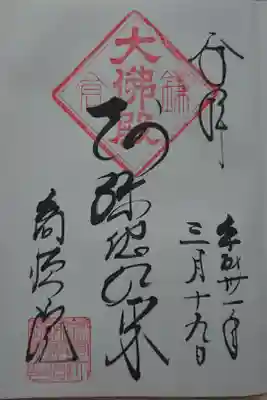 奉拝
平成卅一年
三月十九日
鎌倉
大佛殿
阿弥陀如来
高徳院